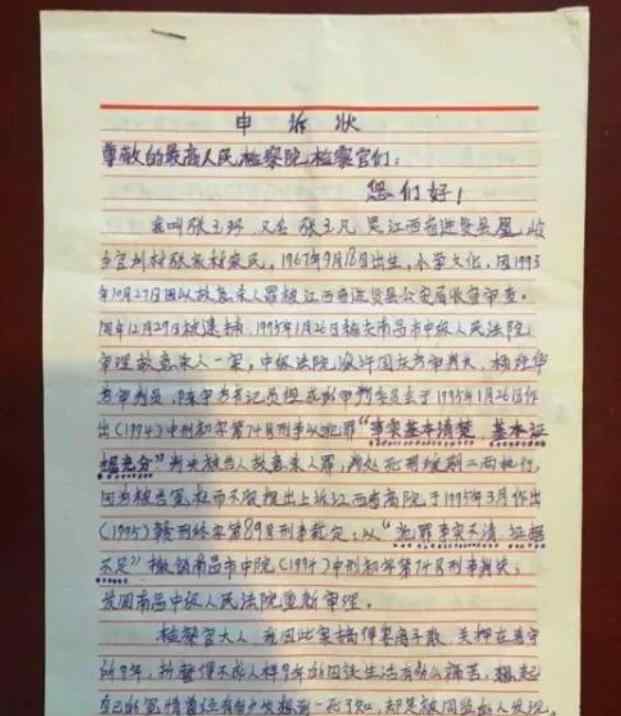 申诉状
尊敬的最高人民检察院检察官们:
您们好!
我叫张玉环 又名 张玉凡 是江西省进贤县凰岭
乡宫圳村张家村农民,1967年9月18日出生,小学文化,因1993
年10月27日因以故意杀人罪被江西省进贤县公安局收容审查。
同年12月29日被逮捕,1995年1月26日经南昌市中级人民法院
审理故意杀人一案,中级法院 审判长,
审判员, 书记员 于1995年1月26日作
出(1994)中刑初字第74号刑事以犯罪“事实基本清楚,基本证
据充分”判决被告人故意杀人罪,判处死刑缓期二年执行,
因为被告冤枉而不服提出上诉江西省高院于1995年3月作出
(1995)赣刑终字第89号刑事裁定,以“犯罪事实不清 证据
不足”撤销南昌市中院(1994)中刑初字第74号刑事判决,
发回南昌中级人民法院重新审理。
检察官大人 我因此案搞得家离子散,关押在看守
所9年,折磨得不成人样9年的囚徒生活有多么痛苦,想起
自己的冤情曾经有多少次想到一死了知,却是被同监的人发现,